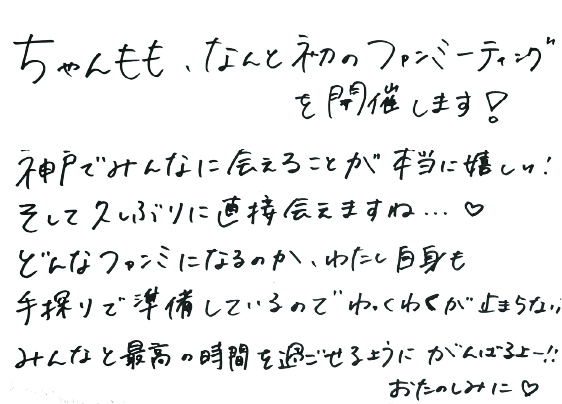 ちゃんもも、なんと初のファンミーティング
を開催します!
神戸でみんなに会えることが本当に嬉しい!
そして久しぶりに直接会えますね...♡
どんなファンミになるのか、わたし自身も
手探りで準備しているのでわくわくが止まらない
みんなと最高の時間を過ごせるようにがんばるよー!!
おたのしみに♡